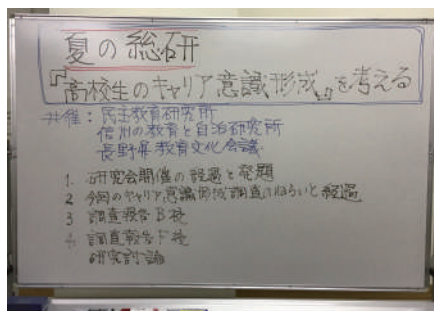 夏の総研
『高校生のキャリア意識形成』を考える
共催：民主教育研究所
信州の教育と自治研究所
長野県教育文化会議
1. 研究会開催の経過と発題
2 今回のキャリア意識形成調査のねらいと経過
3 調査報告B校
4 調査報告F校
研究討論